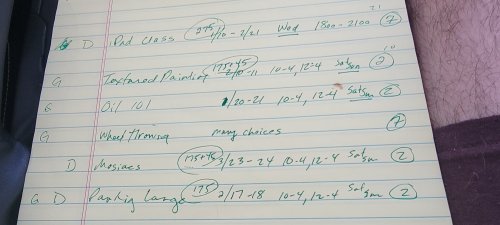 D iPad class 275 1/10 - 2/21 Wed 1800 - 2100 7
G Textured Painting 175+45 2/10-11 10-4, 12-4 Sat Sun 2
G Oil 101 1/20-21 10-4, 12-4 Sat Sun 2
G Wheel Throwing many choices 7
D Mosiacs 175+45 3/23-24 10-4, 12-4 Sat Sun 2
G D Large 175 2/17-18 10-4, 12-4 Sat Sun 2